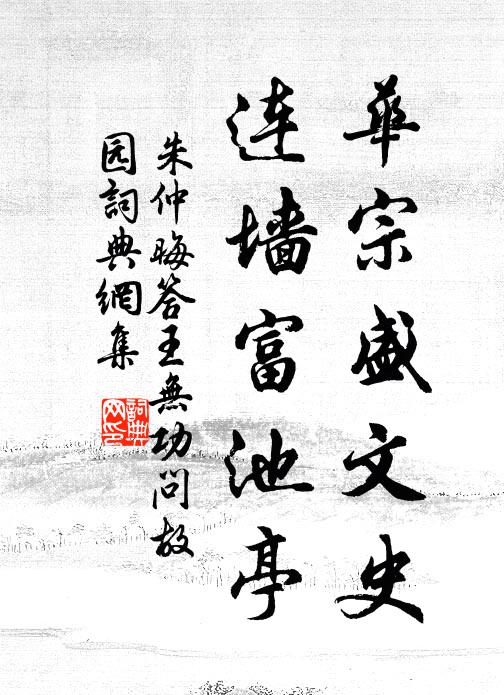 華宗盛文史
连墙富池亭
朱仲晦答王無功問故
园詞典網集
詞典
网印